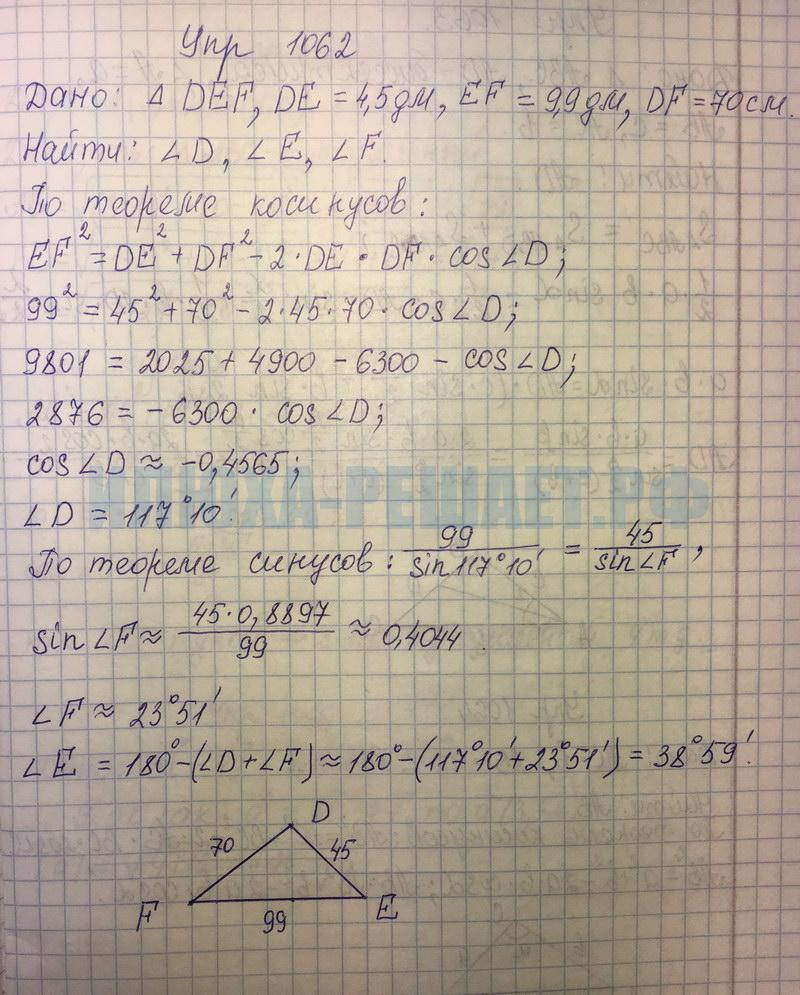 Упр 1062
Дано: Δ DEF, DE = 4,5дм, EF = 9,9дм, DF = 70см.
Найти: ∠D, ∠E, ∠F.
По теореме косинусов:
EF² = DE² + DF² - 2·DE·DF·cos∠D;
99² = 45² + 70² - 2·45·70·cos∠D;
9801 = 2025 + 4900 - 6300 - cos∠D;
2876 = -6300 · cos∠D;
cos∠D ≈ -0,4565;
∠D = 117°10'.
По теореме синусов: 99/sin117°10' = 45/sin∠F,
sin∠F ≈ 45·0,8897/99 ≈ 0,4044.
∠F ≈ 23°51'
∠E = 180°-(∠D+∠F) ≈ 180°-(117°10'+23°51') = 38°59'.
D
70 45
F E
99